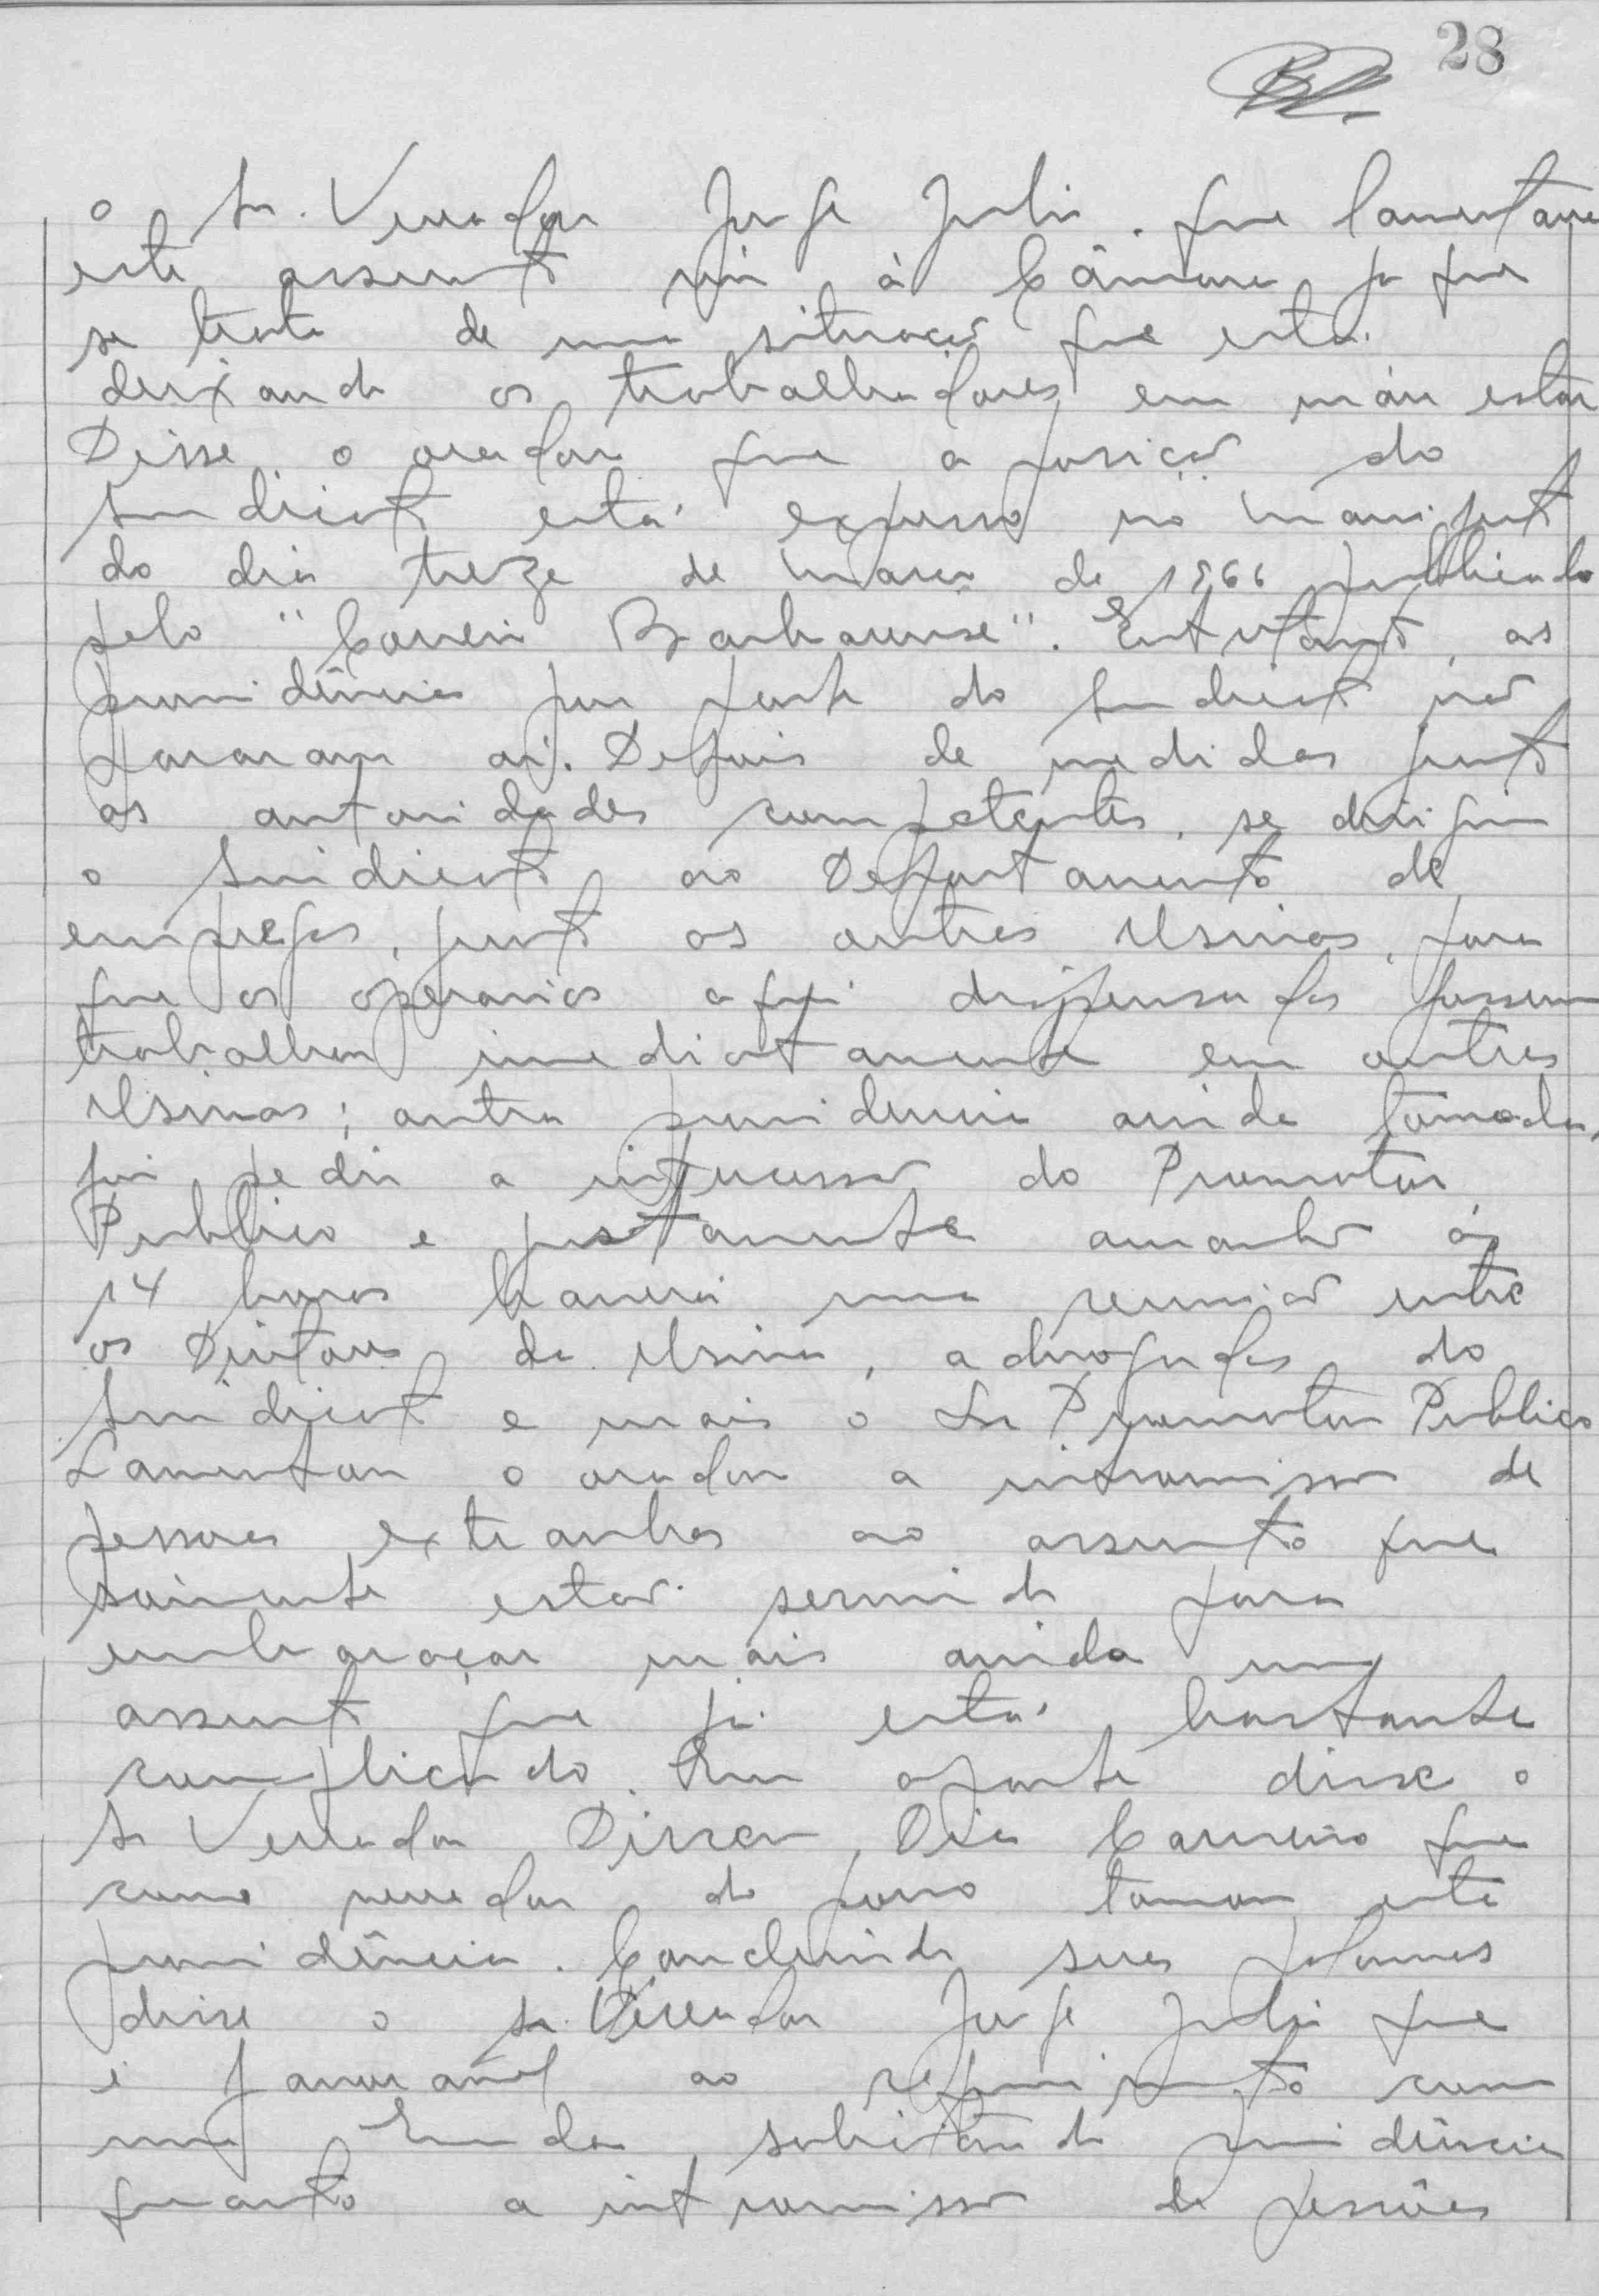 28
o Sr. Vereador Jorge Julio. que lamentava
este assunto vir à Câmara, ja que
se trata de uma situação que está
deixando os trabalhadores em máu estar
Disse o orador que a posição do
Sindicato está expresso no manifesto
do dia treze de março de 1966 publicado
pelo "Correio Barbarense". Entretanto, as
providências por parte do Sindicato não
pararam aí. Depois de medidas junto
as autoridades competentes, se dirigiu
o Sindicato ao Departamento de
empregos, junto as outras Usinas, para
que os operarios aqui dispensados fossem
trabalhar imediatamente em outras
Usinas; outra providencia ainda tomada,
foi pedir a intercessão do Promotor
Publico e justamente amanhã ás
14 horas haverá uma reunião entre
os Diretores da Usina, advogados do
Sindicato e mais o Sr Promotor Publico
Lamentou o orador a intromissão de
pessoas extranhas ao assunto que
sómente estão servindo para
embaraçar mais ainda um
assunto que já está bastante
complicado. Em aparte disse o
Sr Vereador Dirceu Dias Carneiro que
como vereador do povo tomou esta
providência. Concluindo suas palavras
disse o Sr. Vereador Jorge Julio que
é favoravel ao requerimento com
uma Emenda, solicitando providência
quanto a intromissão de pessôas